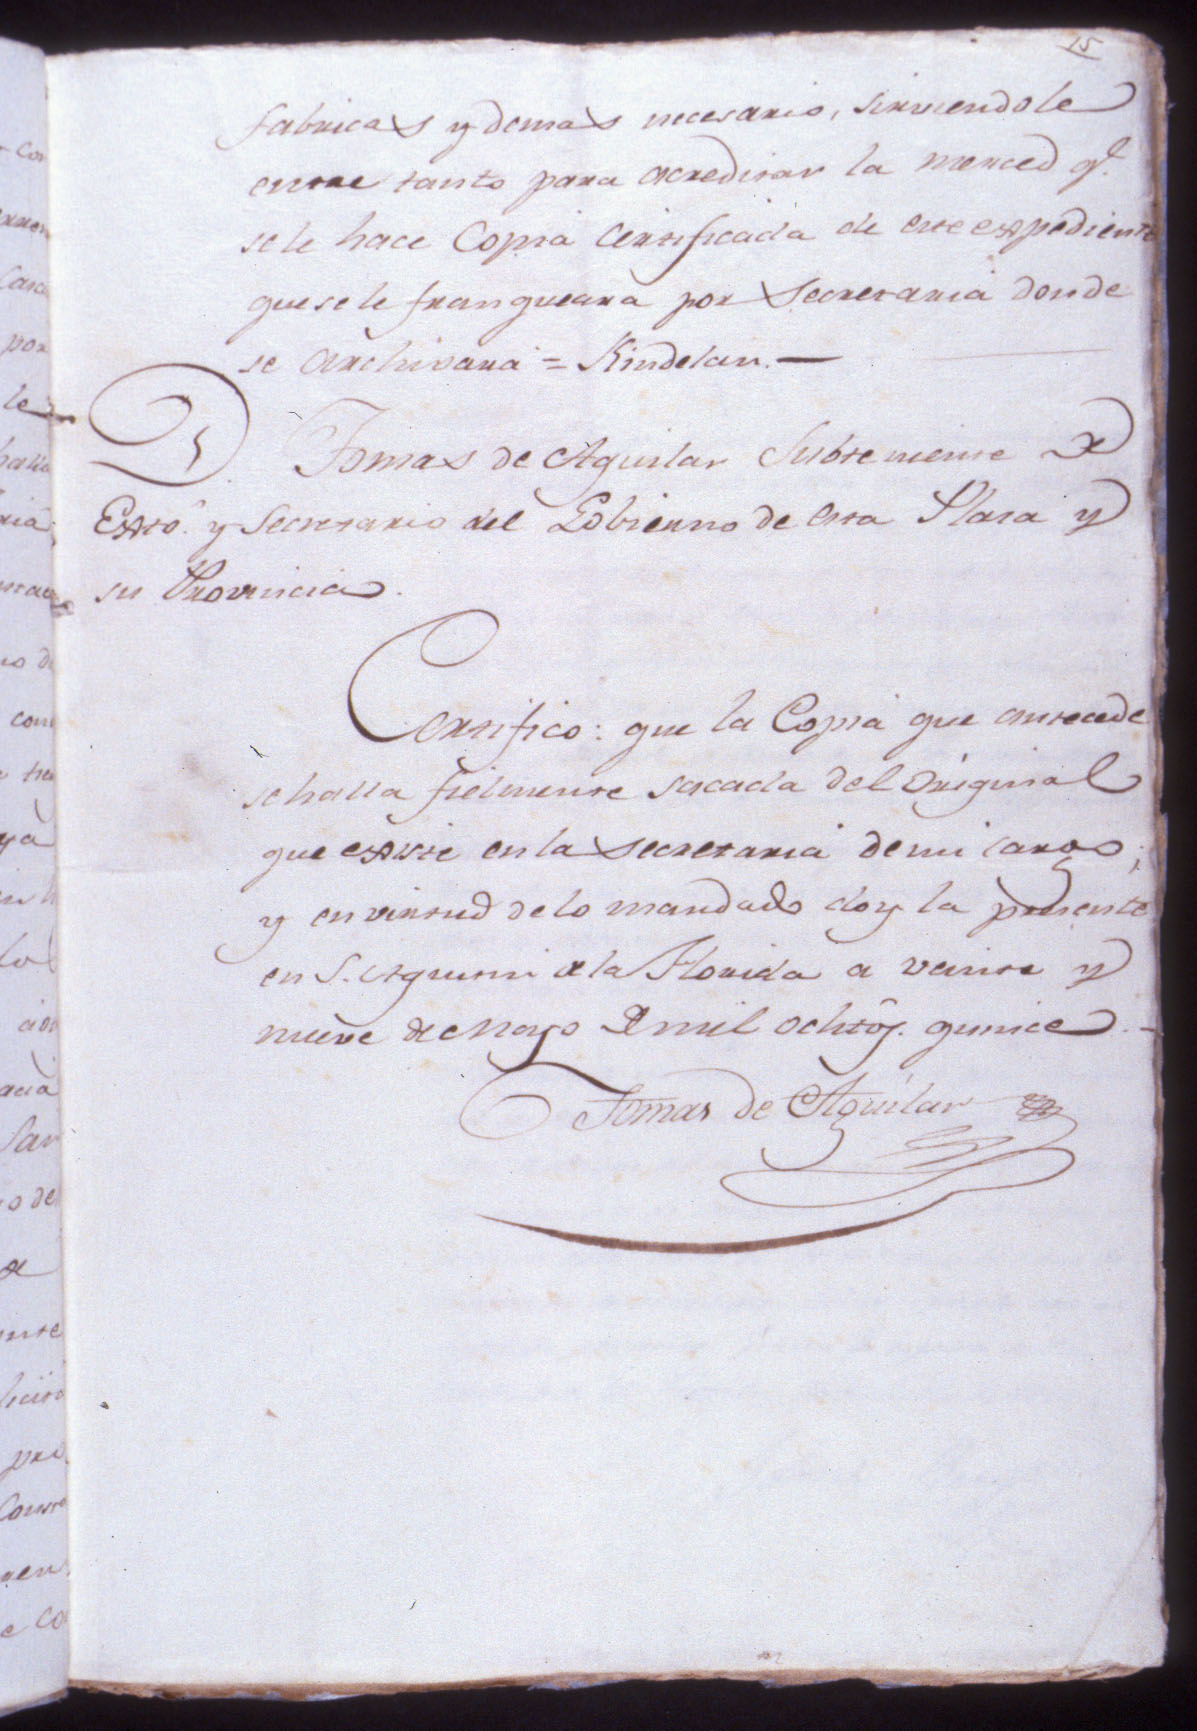 15
fabricas y demas necesario, sirviendole
entre tanto para acreditar la merced q.e
se le hace Copia Certificada de este expediente
que se le franqueara por Secretaria donde
se archivara = Kindelan. —
Dn Tomas de Aguilar Subteniente de
Exto. y Secretario del Gobierno de esta Plaza y
su Provincia.
Certifico: que la Copia que antecede
se halla fielmente sacada del Original
que existe en la Secretaria de mi cargo;
y en virtud de lo mandado doy la presente
en S. Agustin de la Florida a veinte y
nueve de Mayo de mil ochtos. quince. —
Tomas de Aguilar